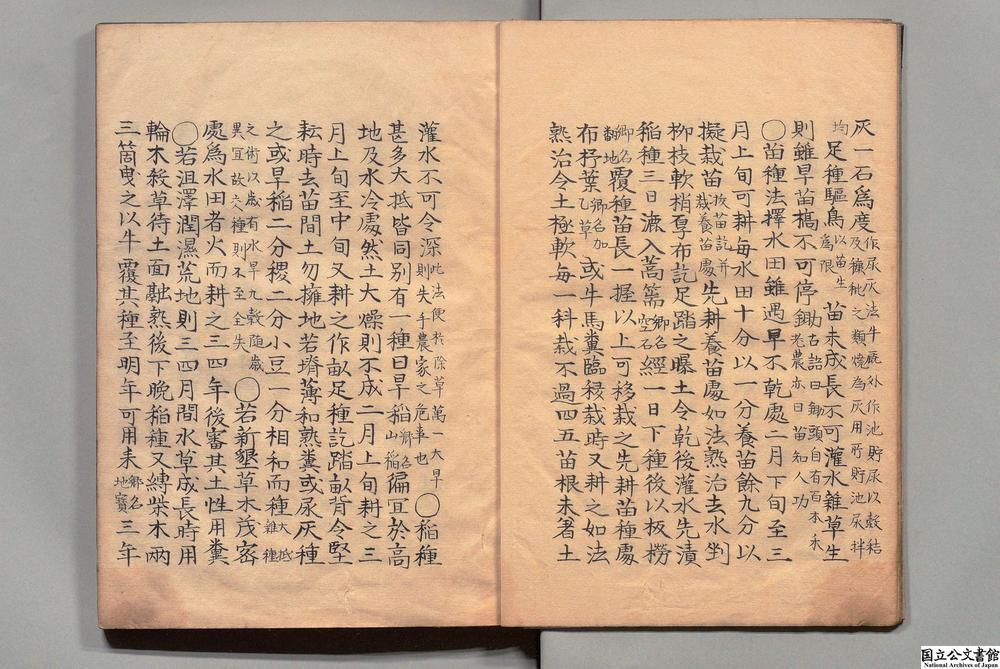 灰一石爲度作尿灰法牛廐外作池貯尿以穀秸及糠秕之類燒為灰用所貯池尿拌
均足種驅鳥以苗生為限苗未成長不可灌水雜草生
則雖旱苗槁不可停鋤古語曰鋤頭自有百本禾老農亦曰苗知人功
〇苗種法擇水田雖遇旱不乾處二月下旬至三
月上旬可耕每水田十分以一分養苗餘九分以
擬栽苗拔苗訖并栽養苗處先耕養苗處如法熟治去水剉
柳枝軟梢厚布訖足踏之曝土令乾後灌水先漬
稻種三日漉入蒿篅鄕名空石經一日下種後以板撈
鄕名翻地覆種苗長一握以上可移栽之先耕苗種處
布杼葉鄕名加乙草或牛馬糞臨移栽時又耕之如法
熟治令土極軟每一科栽不過四五苗根未著土
灌水不可令深此法便於除草萬一大旱則失手農家之危事也〇稻種
甚多大抵皆同別有一種曰旱稻鄕名山稻偏宜於高
地及水冷處然土大燥則不成二月上旬耕之三
月上旬至中旬又耕之作畝足種訖踏畝背令堅
耘時去苗間土勿擁地若塉薄和熟糞或尿灰種
之或旱稻二分稷二分小豆一分相和而種大抵雜種
之術以歲有水旱九穀隨歲異宜故交種則不至全失〇若新墾草木茂密
處爲水田者火而耕之三四年後審其土性用糞
〇若沮澤潤濕荒地則三四月間水草成長時用
輪木殺草待土面融熟後下晩稻種又縛柴木兩
三箇曳之以牛覆其種至明年可用耒鄕名地寶三年
国立公文書館
National Archives of Japan